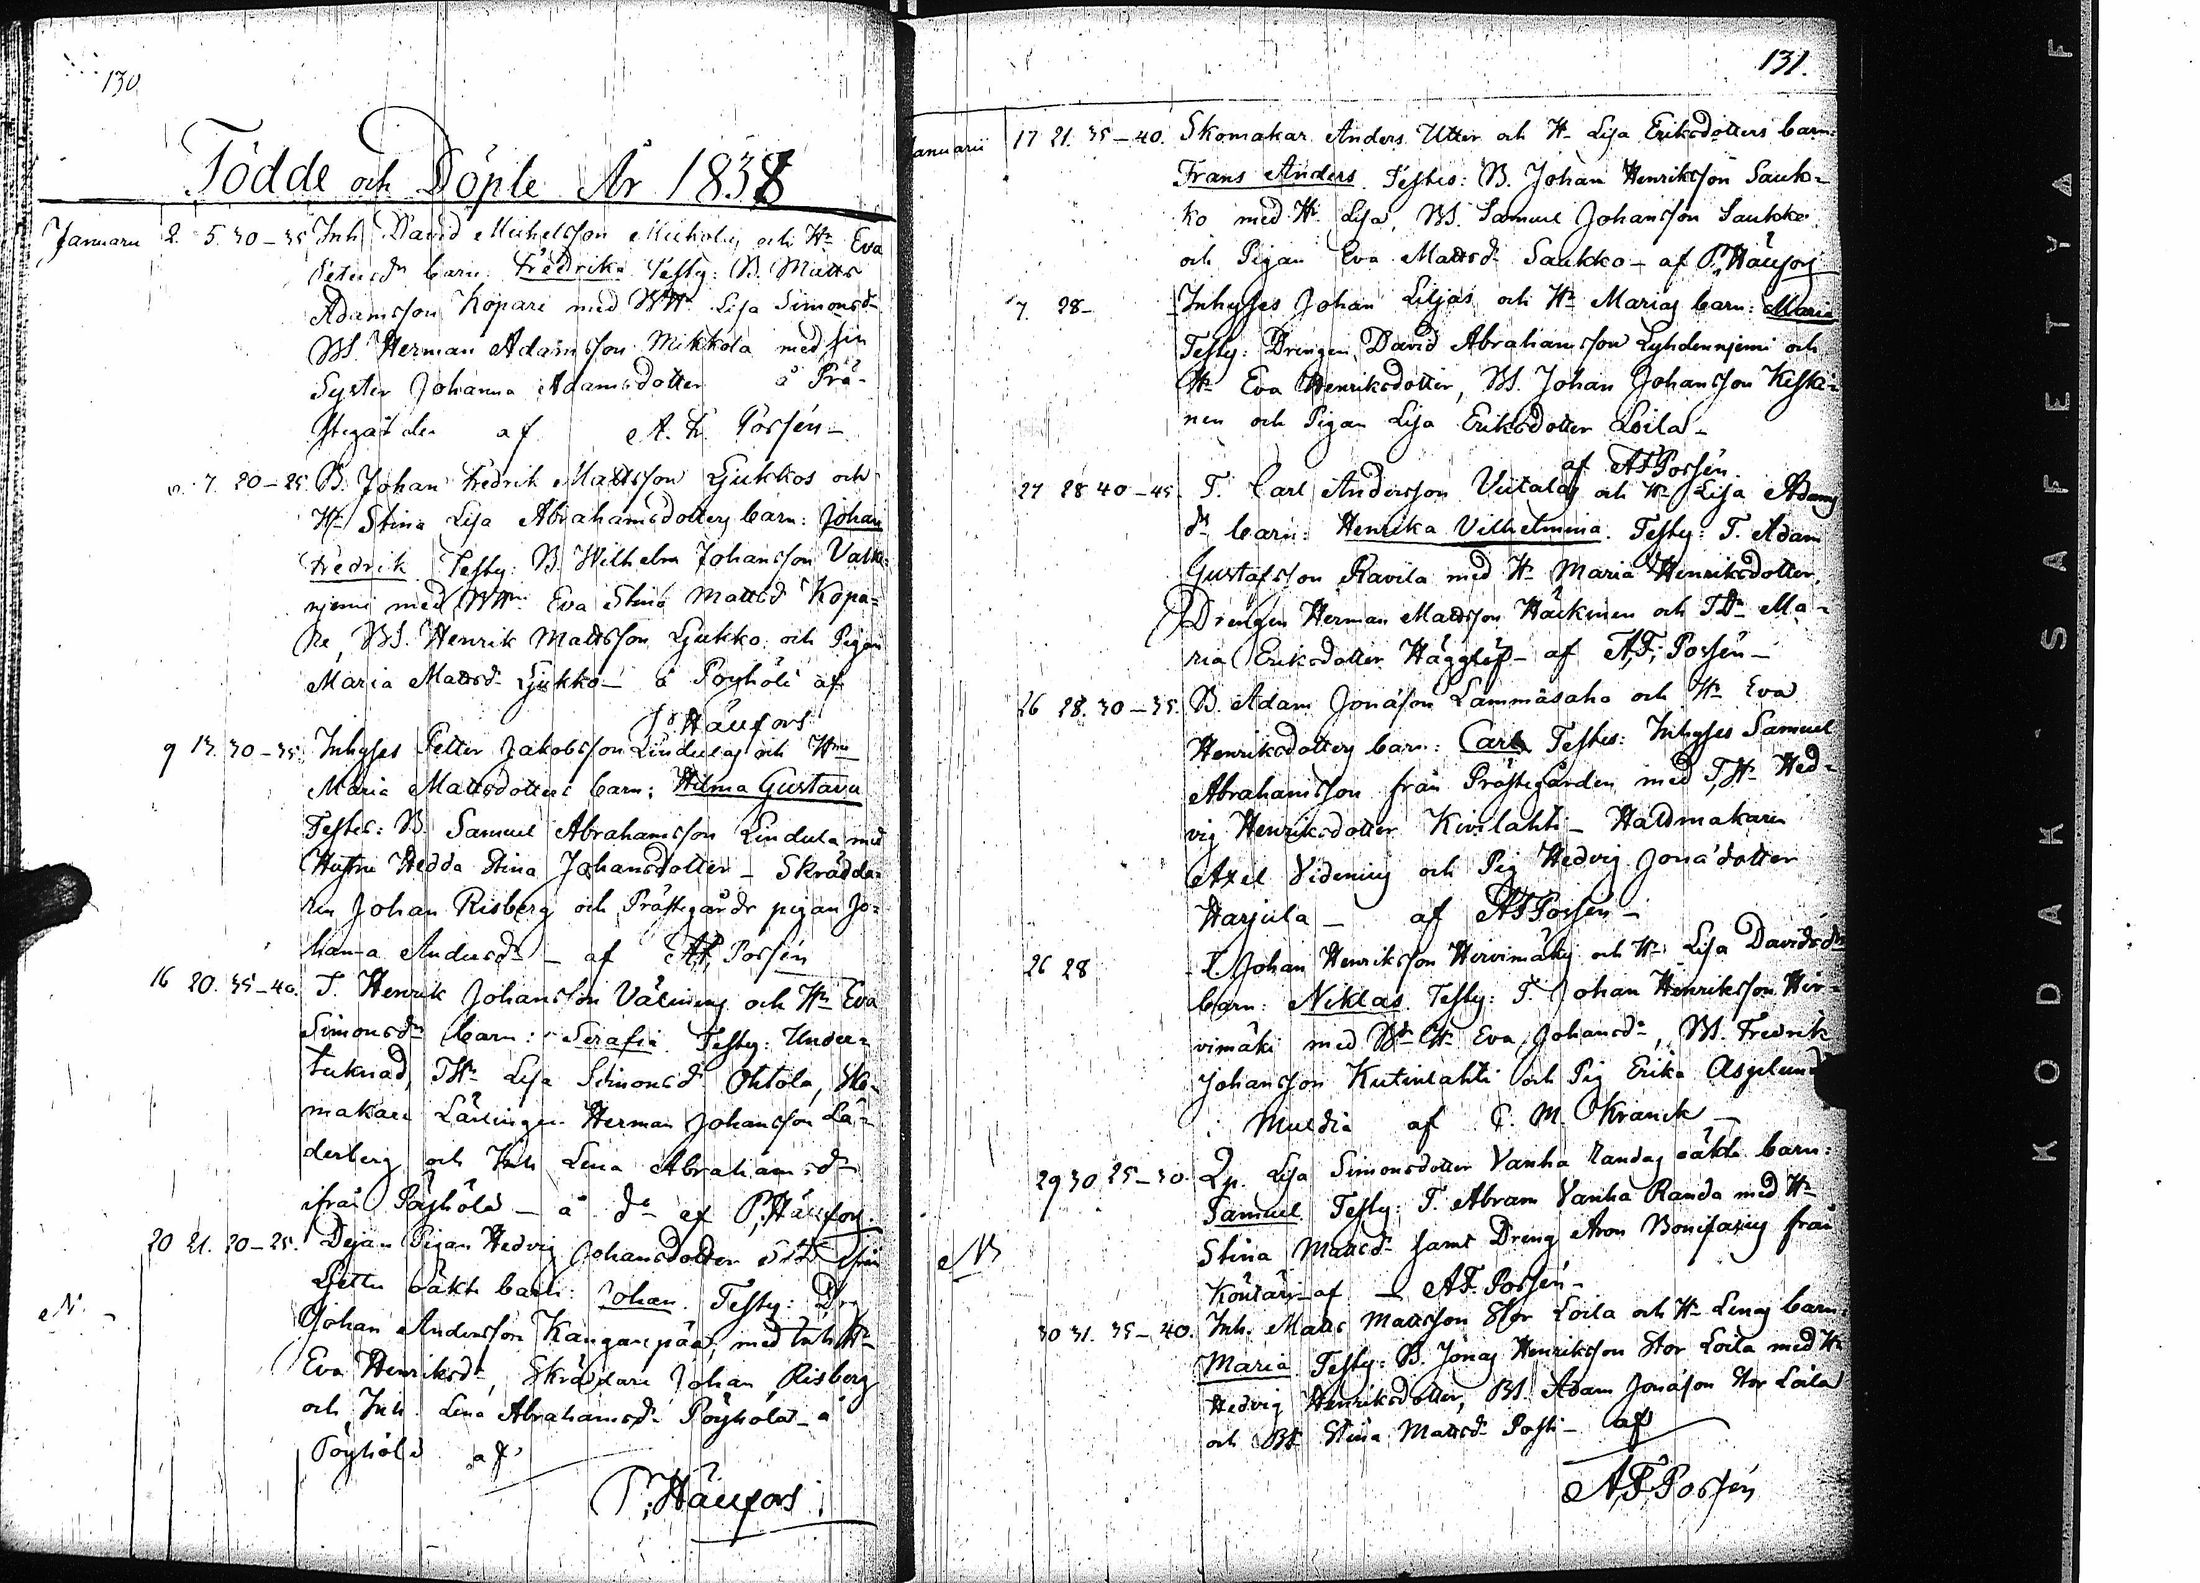 130
Födde och Döpte År 1838
Januarii 2. 5. 30-35 Inh. David Michelsson och Hu Eva
barn: Fredrika. Testes: B. Matts
Adamsson Kopare med BHu Lisa Simonsdr
BS. Herman Adamsson Mikkola med sin
Syster Johanna Adamsdotter å Prä-
stegården af A. F. Porsén-
5. 7. 20-25. B. Johan Fredrik Mattsson Ljukkos och
Hu Stina Lisa Abrahamsdotters barn: Johan
Fredrik. Testes: B. Wilhelm Johansson
med Eva Stina Mattsd Kopa-
re, BS. Henrik Mattsson Ljukko och Pigan
Maria Mattsd. Ljukko- å Pöyhölä af
Häufors
9 13. 30-35. Inhyses Petter Jakobsson Lindulas och
Maria Mattsdotters barn: Hilma Gustava
Testes: B. Samuel Abrahamsson Lindula med
Hustru Hedda Stina Johansdotter - Skrädda-
ren Johan Risberg och Prästegårds pigan Jo-
hanna Andersdr - af AF. Porsén
16 20. 35-40. T. Henrik Johansson och Hu Eva
Simonsdr barn: Serafia. Testes: Under-
tecknad, THu Lisa Simonsd.
makare Lärlingen Herman Johansson
derberg och Inh Lena Abrahamsdr
ifrån Pöyhölä - å do af P. Häufors.
20 21. 20-25. Pigan Hedvig Johansdotter
oäkta barn: Johan. Testes: Dr.
Johan Andersson Kangarpää, med Inh Hu
Eva Henriksdr, Skräddare Johan Risberg
och Inh. Lena Abrahamsdr Pöyhölä - å
Pöyhölä af
P. Häufors
131.
Januarii 17 21. 35-40. Skomakar Anders Utter och Hu Lisa Eriksdotters barn:
Frans Anders. Testes: B. Johan Henriksson Sauk-
ko med Hu Lisa, BS. Samuel Johansson Saukko
och Pigan Eva Mattsdr Saukko - af P. Häufors
7. 28- Inhyses Johan Liljas och Hu Marias barn: Maria
Testes: Drengen David Abrahamsson och
Hu Eva Henriksdotter, BS. Johan Johansson Keski-
nen och Pigan Lisa Eriksdotter Loila-
af AF Porsén.
27 28 40-45. T. Carl Andersson Viitalas och Hu Lisa Adams
dr barn: Henrika Vilhelmina. Testes: T. Adam
Gustafsson Ravila med Hu Maria Henriksdotter,
Drengen Herman Mattsson Häckinen och THu Ma-
ria Eriksdotter Hägglöf- af A,F, Porsén-
26 28. 30-35. B. Adam Jonasson Lammasaho och Hu Eva
Henriksdotters barn: Carl. Testes: Inhyses Samuel
Abrahamsson från Prästegården med T,Hu Hed-
vig Henriksdotter Kivilahti - Hattmakaren
Axel Videnius och Pig Hedvig Jonasdotter
Harjula - af AF Porsén -
26 28 T. Johan Henriksson Hirvimäkis och Hu Lisa Davidsdr
barn: Niklas. Testes: T. Johan Henriksson Hir-
vimäki med Hu Eva Johansdr, BS. Fredrik
Johansson Kutinlahti och Pig Erika Asplund
Muldia af C. M. Kranck -
29 30 25-30. Qp. Lisa Simonsdotter Vanha Randas oäkta barn:
Samuel. Testes: T. Abram Vanha Randa med Hu
Stina Mattsdr samt Dreng Aron Bonifacius från
af - AF. Porsén-
30 31. 35-40. Inh. Matts Mattsson Stor Loila och Hu Lenas barn:
Maria. Testes: B. Jonas Henriksson Stor Loila med Hu
Hedvig Henriksdotter, BS. Adam Jonasson Stor Loila
och Stina Mattsdr Posti - af
A,F, Porsén
KODAK · SAFETY A F